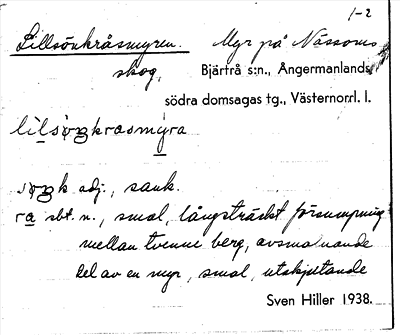 1-2
Lillsönkråsmyren. Myr på Nässoms
skog,
Bjärtrå s:n., Ångermanlands
södra domsagas tg., Västernorrl. l.
sank adj., sank.
ra sbt. n., smal, långsträckt försumpning
mellan tvenne berg, avsmalnande
del av en myr, smal, utskjutande
Sven Hiller 1938.